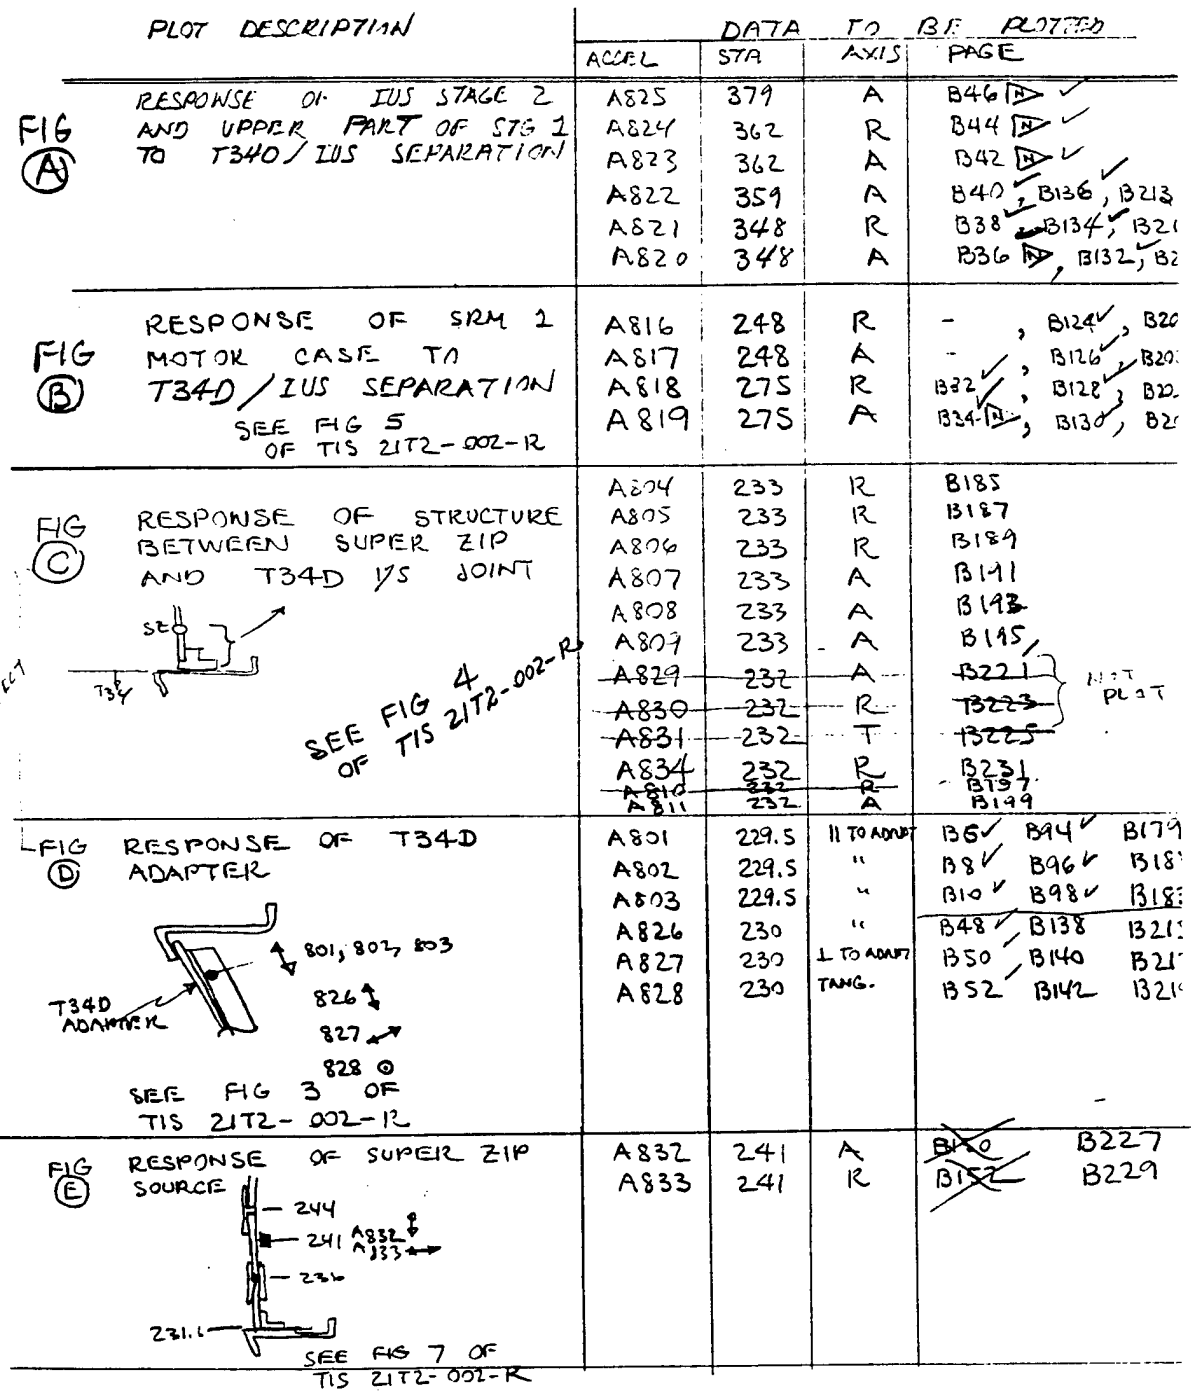 PLOT DESCRIPTION DATA TO BE PLOTTED
ACCEL STA AXIS PAGE
FIG A
RESPONSE OF IUS STAGE 2
AND UPPER PART OF STG 1
TO T34D/IUS SEPARATION
A825 379 A B46 N ✓
A824 362 R B44 N ✓
A823 362 A B42 N ✓
A822 359 A B40 ✓, B136 ✓, B213
A821 348 R B38 ✓, B134 ✓,
A820 348 A B36 N, B132 ✓,
FIG B
RESPONSE OF SRM 1
MOTOR CASE TO
T34D/IUS SEPARATION
SEE FIG 5
OF TIS 21T2-002-R
A816 248 R - , B124 ✓,
A817 248 A - , B126 ✓,
A818 275 R B32 ✓, B128 ✓,
A819 275 A B34 N, B130 ✓,
FIG C
RESPONSE OF STRUCTURE
BETWEEN SUPER ZIP
AND T34D I/S JOINT
SZ
T34
SEE FIG 4
OF TIS 21T2-002-R
A804 233 R B185
A805 233 R B187
A806 233 R B189
A807 233 A B191
A808 233 A B193
A809 233 A B195
A829 232 A B221
A830 232 R B223
A831 232 T B225
NOT
PLOT
A834 232 R B231
A810 232 R B197
A811 232 A B199
FIG D
RESPONSE OF T34D
ADAPTER
T34D
ADAPTER
801, 802, 803
826
827
828
SEE FIG 3 OF
TIS 21T2-002-R
A801 229.5 || TO ADAPT B6 ✓ B94 ✓ B179
A802 229.5 " B8 ✓ B96 ✓
A803 229.5 " B10 ✓ B98 ✓ B183
A826 230 " B48 ✓ B138
A827 230 ⊥ TO ADAPT B50 ✓ B140
A828 230 TANG. B52 ✓ B142
FIG E
RESPONSE OF SUPER ZIP
SOURCE
244
241 A832
A833
236
231.1
SEE FIG 7 OF
TIS 21T2-002-R
A832 241 A B150 B227
A833 241 R B152 B229